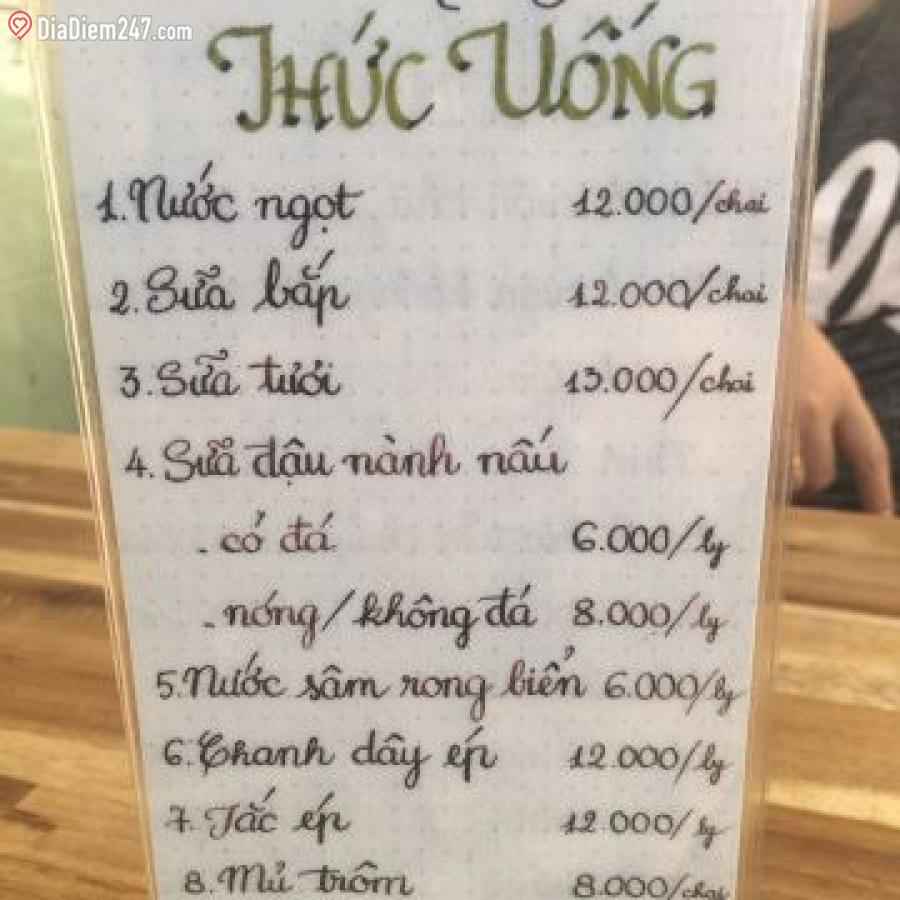 DiaDiem247.com
THỨC UỐNG
1. Nước ngọt 12.000/chai
2. Sữa bắp 12.000/chai
3. Sữa tươi 13.000/chai
4. Sữa đậu nành nấu
- có đá 6.000/ly
- nóng/không đá 8.000/ly
5. Nước sâm rong biển 6.000/ly
6. Chanh dây ép 12.000/ly
7. Tắc ép 12.000/ly
8. Mủ trôm 8.000/chai